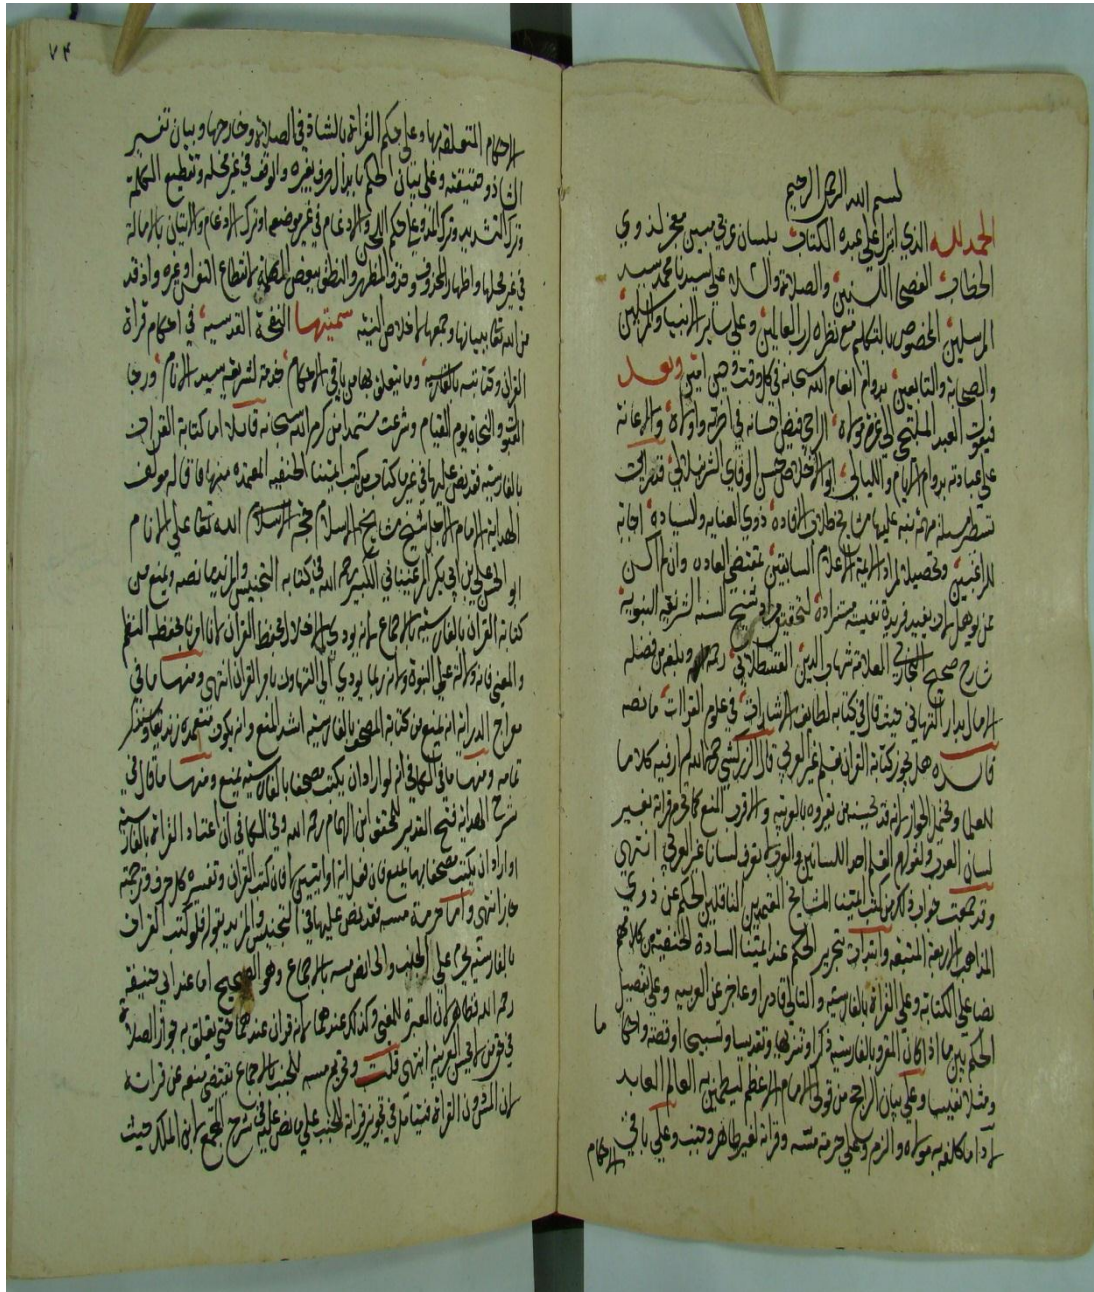 بسم الله الرحمن الرحيم
الحمد لله الذي انزل على عبده الكتاب بلسان عربي مبين معجز لذوي
الخطاب الفصحى اللسنين والصلاة والسلام على سيدنا محمد سيد
المرسلين المخصوص بالتكليم مع نظره لرب العالمين وعلى ساير الانبيا والمرسلين
والصحابة والتابعين بدوام انعام الله سبحانه في كل وقت وحين امين وبعد
فيقول العبد الملتجي الى عزة مولاه الراجي فيض احسانه في اخرته واولاه والاعانة
على عبادته بدوام الايام والليالي ابو الاخلاص حسن الوفاي الشرنبلالي قد سالت
تسطير رسالة مهمة نبه عليها مشايخ طلاب الافادة ذوي العناية والسيادة اجابة
للراغبين وتحصيلا لمراد الايمة الاعلام السابقين بمقتضى العادة وان لم اكن
شيخ السنة الشريفة النبوية
شارح صحيح البخاري العلامة شهاب الدين القسطلاني رحمه وبلغه من فضله
الامال بدار التهاني حيث قال في كتابه لطايف الاشارات في علوم القراات ما نصه
هل يجوز كتابة القران بقلم غير العربي قال الزركشي رحمه الله لم ار فيه كلاما
للعلما ويحتمل الجواز لانه قد يحسنه من يقروه بالعربية والاقرب المنع كما تحرم قراته بغير
لسان العرب ولقولهم القلم احد اللسانين والعرب لا تعرف لسانا غير العربي انتهى
وقد جمعت جوابه لذلك من كتب ايمتنا المشايخ المعتمدين الناقلين الحكم عن ذوي
المذاهب الاربعة المتبعة وابتدات بتحرير الحكم عند ايمتنا السادة الحنفية من كلامهم
نصا على الكتابة وعلى القراة بالفارسية والتالي قادرا او عاجز عن العربية وعلى تفصيل
الحكم بين ما اذا كان المقرو بالفارسية ذكرا وتنزيها وتقديسا وتسبيحا او قصة واحكاما
ومثلا نفيسا وعلى بيان الراجح من قولي الامام الاعظم ليطمئن به العالم العابد
لادا ما كلفه به مولاه والزم وعلى حرمة مسه وقراته لغير طاهر وجنب وعلى باقي
الاحكام
٧٤
الاحكام المتعلقة بها وعلى حكم القراة بالشاذ في الصلاة وخارجها وبيان تفسير
الشاذ وحقيقته وعلى بيان الحكم بابدال حرف بغيره والوقف في غير محله وتقطيع الكلمة
وترك التشديد وترك المد وعلى حكم اللحن والادغام في غير موضعه او ترك الادغام والاتيان بالامالة
في غير محلها واظهار المحذوف وحذف المظهر والنطق ببعض الكلمة لانقطاع النفس او غيره واذ قد
من الله تعالى ببيانها وجمعها باخلاص النية سميتها النفحة القدسية في احكام قراة
القران وكتابته بالفارسية وما يتعلق بها من باقي الاحكام خدمة لشريعة سيد الانام ورجا
القبول والنجاة يوم القيام وشرعت مستمدا من كرم الله سبحانه قايلا اما كتابة القران
بالفارسية فقد نص عليها في غير ما كتاب من كتب ايمتنا الحنفية المعتمدة منها ما قاله مولف
الهداية الامام الاجل شيخ مشايخ الاسلام حجة الاسلام الله تعالى على الانام
ابو الحسن علي بن ابي بكر المرغيناني الكبير رحمه الله في كتابه التجنيس والمزيد ما نصه ويمنع من
كتابة القران بالفارسية بالاجماع لانه يودي الى الاخلال بحفظ القران لانا امرنا بحفظ النظم
والمعنى فانه دلالة على النبوة ولانه ربما يودي الى التهاون بامر القران انتهى ومنها ما في
معراج الدراية انه يمنع من كتابة المصحف بالفارسية اشد المنع وانه يكون متعمده زنديقا وسنذكر
تمامه ومنها ما في الكافي انه لو اراد ان يكتب مصحفا بالفارسية يمنع ومنها ما قال في
شرح الهداية فتح القدير للمحقق ابن الهمام رحمه الله وفي الكافي ان اعتاد القراة بالفارسية
او اراد ان يكتب مصحفا بها يمنع فان فعل اية او ايتين لا فان كتب القران وتفسير كل حرف وترجمته
جاز انتهى واما حرمة مسه فقد نص عليها في التجنيس والمزيد بقوله فلو كتب القران
بالفارسية يحرم على الجنب والحايض مسه بالاجماع وهو الصحيح اما عند ابي حنيفة
رحمه الله فظاهر لان العبرة للمعنى وكذلك عندهما لانه قران عندهما حتى يتعلق به جواز الصلاة
في حق من لا يحسن العربية انتهى قلت وتحريم مسه للجنب بالاجماع يقتضي منعه عن قراته
لان المس دون القراة فيتامل في تجويز قراة الجنب على ما نص عليه في شرح المجمع لابن الملك حيث